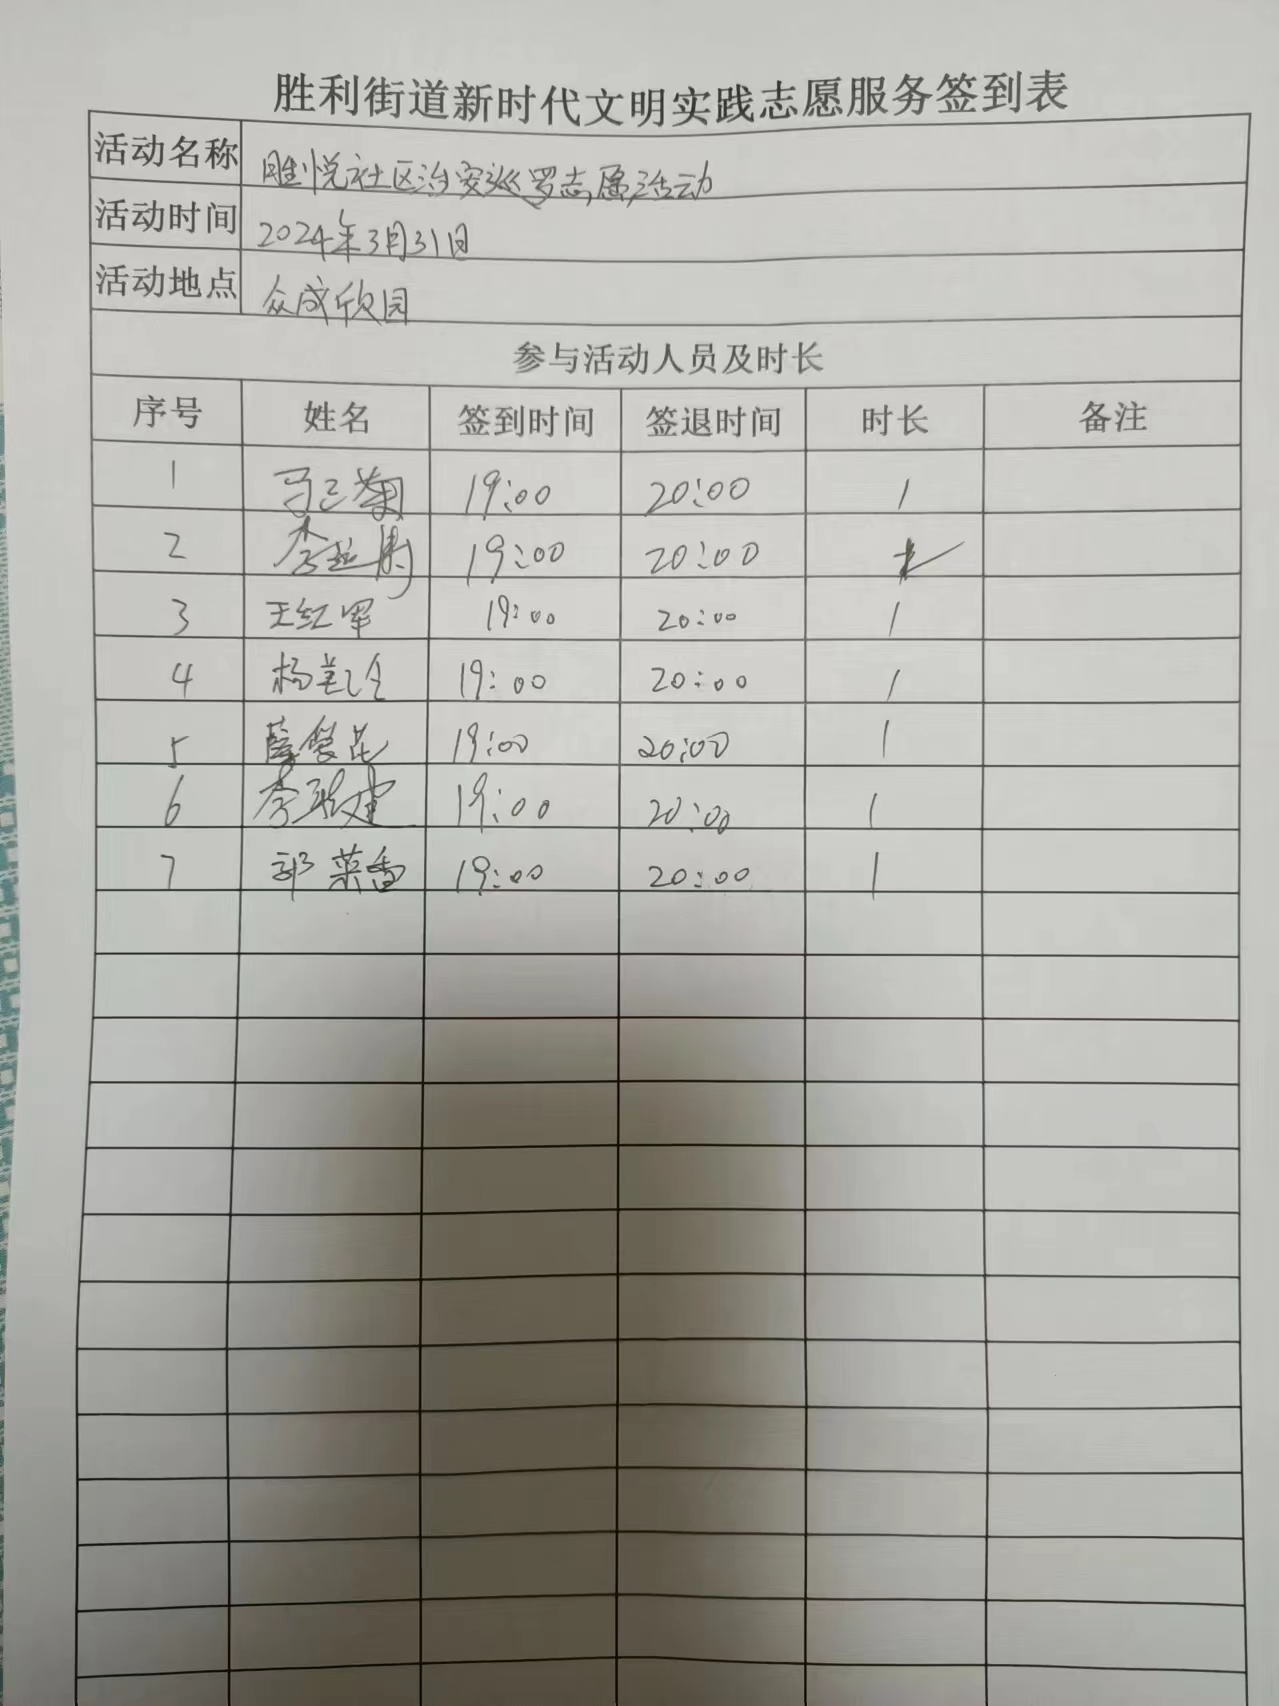 胜利街道新时代文明实践志愿服务签到表
活动名称 胜悦社区治安巡罗志愿活动
活动时间 2024年3月31日
活动地点 众成欣园
参与活动人员及时长
序号 姓名 签到时间 签退时间 时长 备注
1 19:00 20:00 1
2 李 19:00 20:00
3 王红军 19:00 20:00 1
4 杨美 19:00 20:00 1
5 19:00 20:00 1
6 李 建 19:00 20:00 1
7 郭菜香 19:00 20:00 1